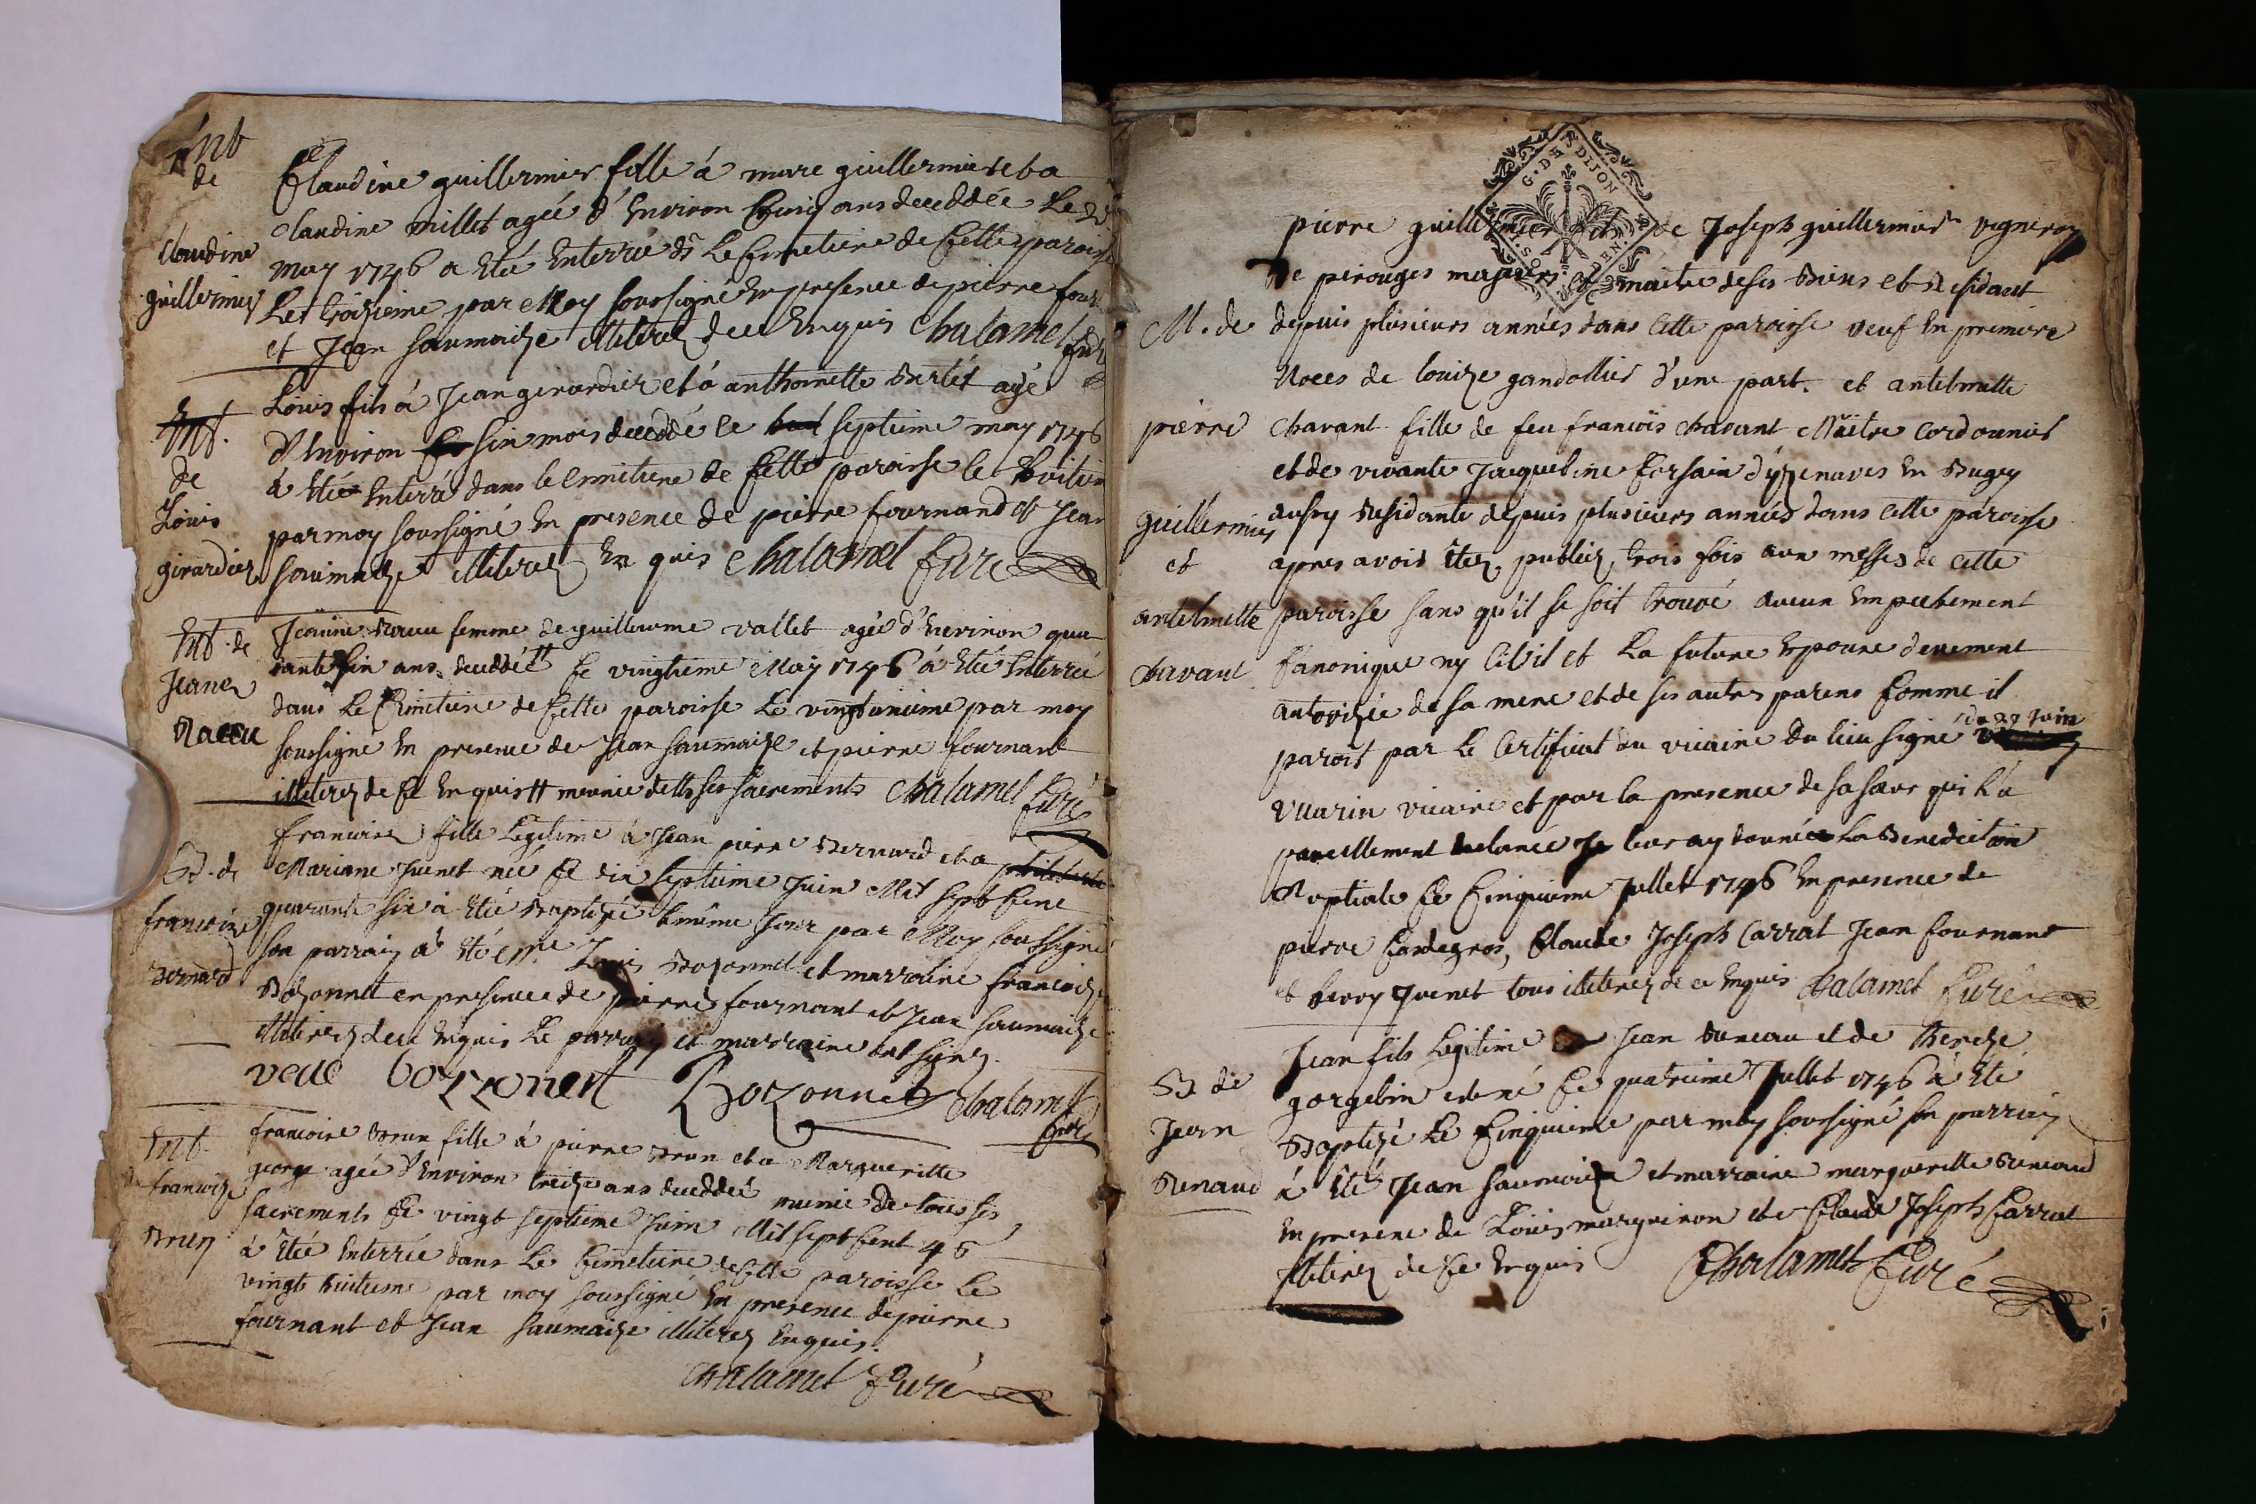 Ent
de
Claudine
guillermier
Claudine guillermier fille à marc guillermier et a
Claudine millet agée d'Environ ans deceddée Le
may 1746 a Eté Enterrée ds Le Cimetiere de Cette paroisse
Le troizieme par Moy soussigné En presence de pierre
et Jean saumaize illiterez de ce Enquis Chalamel Curé
Ent.
de
Louis
girardier
Louis fils á Jean girardier et á anthoinette agé
d'Environ six mois deceddé le septieme may 1746
á Eté Enterré dans le Cimetiere de Cette paroisse le huitieme
par moy soussigné En presence de pierre fournand et Jean
saumaize illiterez Enquis Chalamel Curé
Ent. de
Jeane
Raccu
femme de guillaume vallet agée d'Environ qua
rante ans deceddée ce vingtieme May 1746 á Eté Enterrée
dans Le Cimetiere de Cette paroisse Le vingtunieme par moy
soussigné En presence de Jean saumaize et pierre fournant
illiterez de Ce Enquis # munie de ts ses sacrements Chalamel Curé
B. de
francoize
Bernard
francoize fille Legitime á Jean pierre Bernard et a
Mariane Juenet née Ce dix septieme Juin Mil sept Cent
quarante six á Eté Baptizée le même Jour par Moy soussigné
son parrain á Eté Louis Bozonnet et marraine francoize
Bozonnet en presence de pierre fournant et Jean saumaize
illiterez de ce Enquis Le parrain et marraine ont signez.
Bozonnet Chalamel
Curé
Ent.
de francoize
Brun
francoise Brun fille á pierre Brun et a Margueritte
george agée d'Environ treize ans deceddée munie de tous ses
sacrements Ce vingt septieme Juin Mil sept Cent 46
á Eté Enterrée dans Le Cimetiere de Cette paroisse Le
vingt huitieme par moy soussigné En presence de pierre
fournant et Jean saumaize illiterez Enquis.
Chalamel Curé
G. DE DIJON
M. de
pierre
guillermier
et
antelmette
Chavant
pierre guillermier fils de Joseph guillermier vigneron
De perouges majeur et maitre de ses Biens et Residant
depuis plusieurs années dans Cette paroisse veuf En premiere
Noces de louize gandollier d'une part. et antelmette
Chavant fille de feu francois Chavant Maitre Cordonnier
et de vivante Jacqueline d'yzenaves En Bugey
aussy Residante depuis plusieurs années dans Cette paroisse
apres avoir Etez publiez trois fois aux messes de Cette
paroisse sans qu'il se soit trouvé aucun Empechement
Canonique ny Civil et La future Epouse duement
autorizée de sa mere et de ses autres parens Comme il
paroit par Le Certificat du vicaire du lieu signé du 27 Juin
vuarin vicaire et par la presence de sa sœur qui L'a
pareillement Je leur ay donnée La Benediction
Nuptiale Ce Cinquieme Jullet 1746 En presence de
pierre Cardegros, Claude Joseph Carrat Jean fournant
et Juenet tous illiterez de ce Enquis Chalamel Curé
B. de
Jean
Renaud
Jean fils Legitime Jean Runeau et de Thereze
gorgelin né Ce quatrieme Jullet 1746 á Eté
Baptizé Le Cinquieme par moy soussigné son parrain
á Eté Jean saumaize et marraine margueritte Runeaud
En presence de Louis marguiron et de Claude Joseph Carrat
Illiterez de Ce Enquis Chalamel Curé